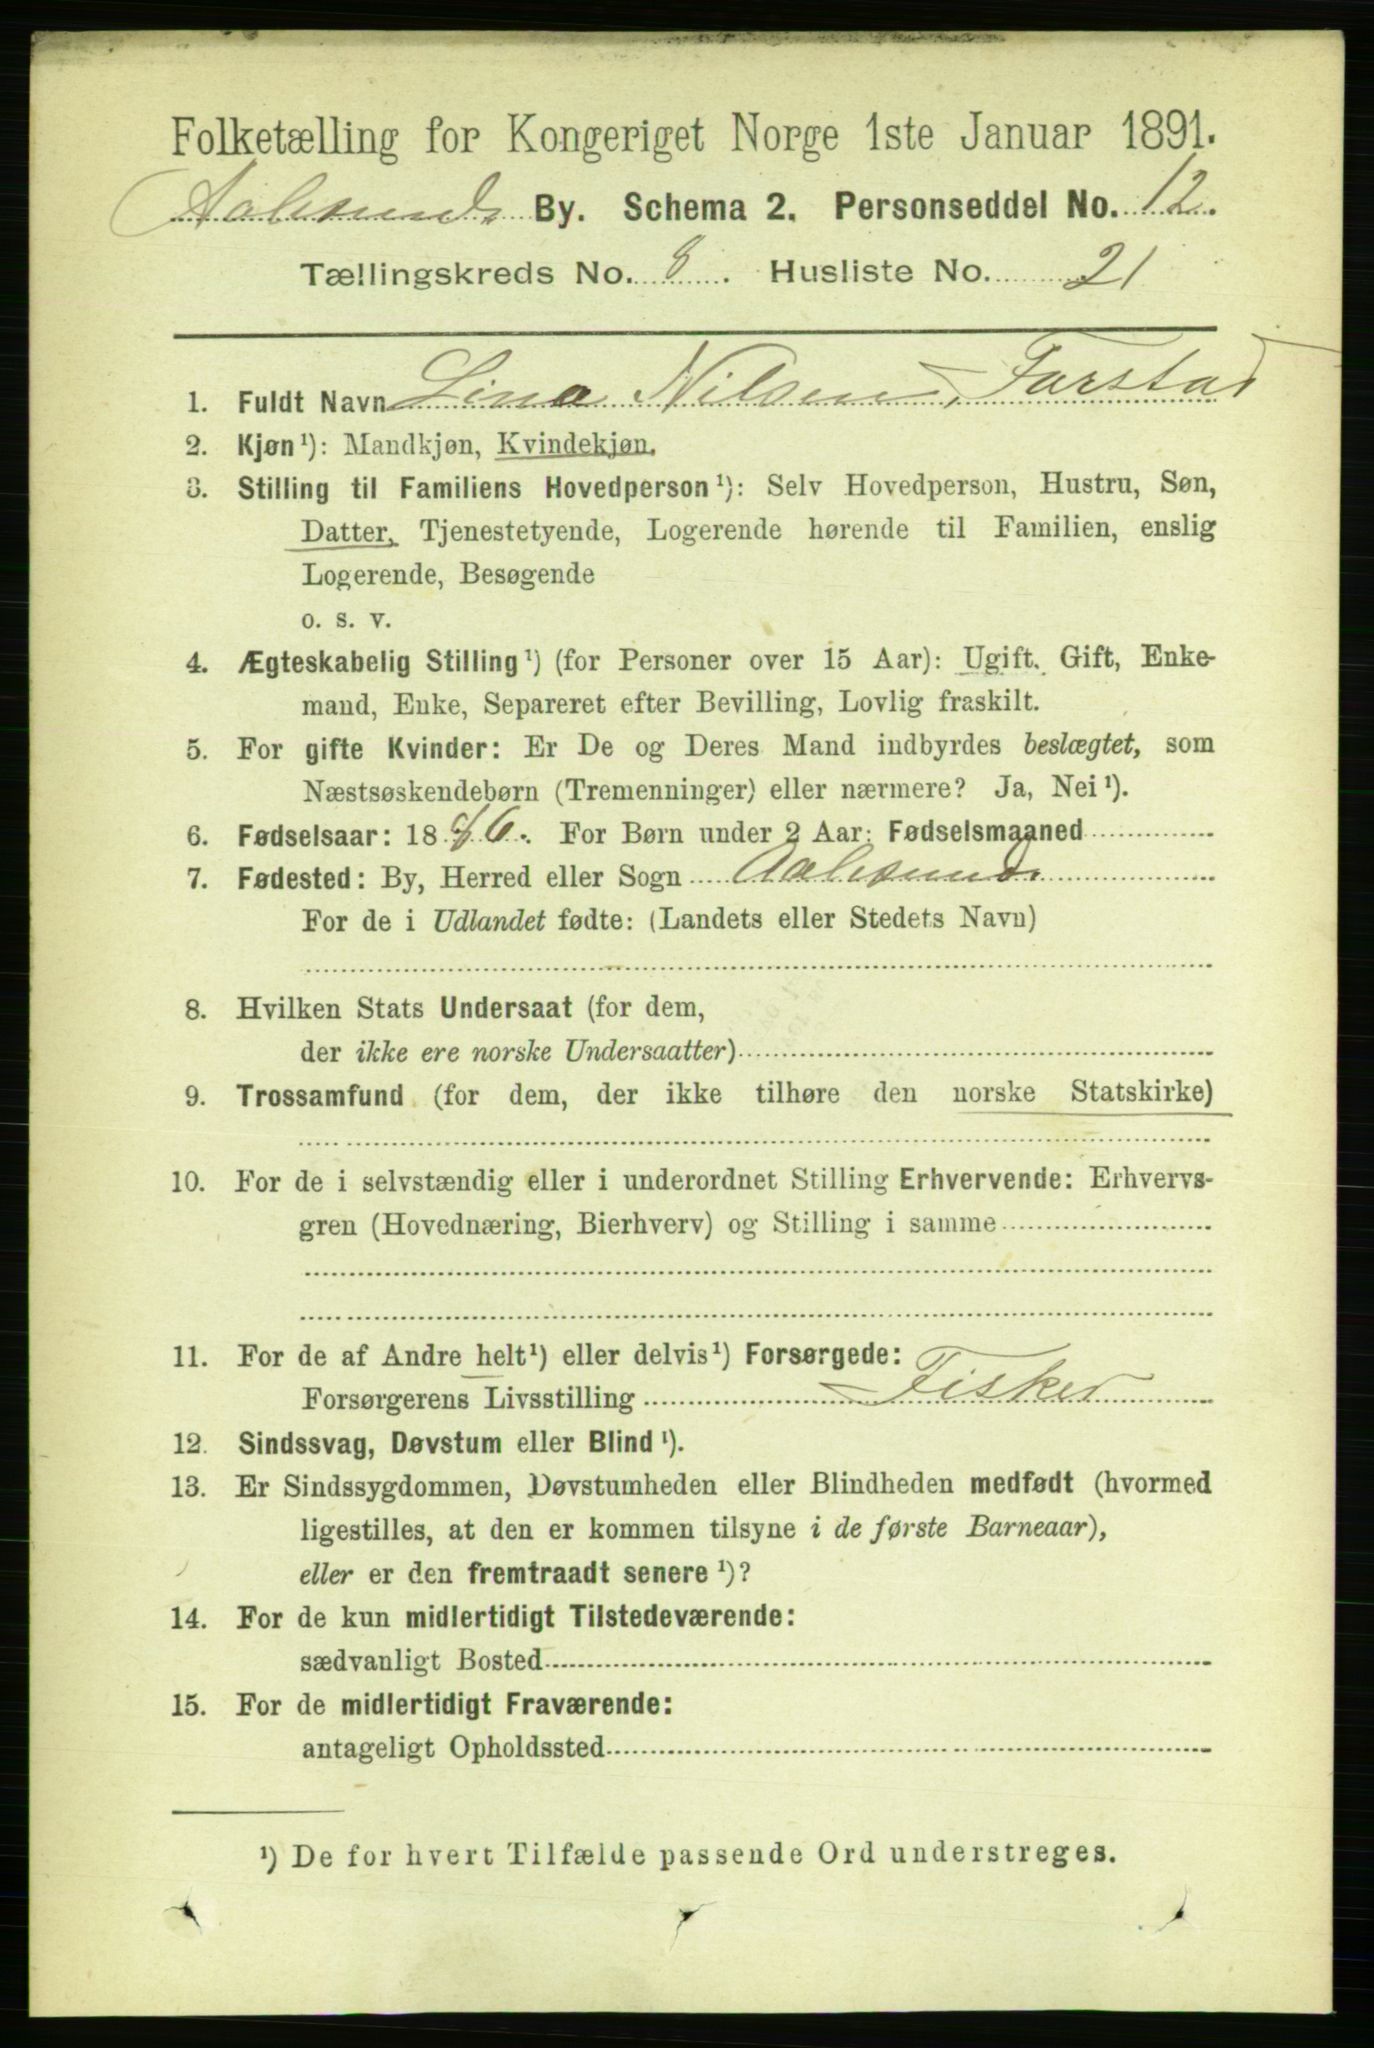 Folketælling for Kongeriget Norge 1ste Januar 1891.
Aalesunds By. Schema 2. Personseddel No. 12.
Tællingskreds No. 8. Husliste No. 21
1. Fuldt Navn Lina Nilsen, Farstad
2. Kjøn¹): Mandkjøn, Kvindekjøn.
3. Stilling til Familiens Hovedperson¹): Selv Hovedperson, Hustru, Søn,
Datter, Tjenestetyende, Logerende hørende til Familien, enslig
Logerende, Besøgende
o. s. v.
4. Ægteskabelig Stilling¹) (for Personer over 15 Aar): Ugift. Gift, Enke-
mand, Enke, Separeret efter Bevilling, Lovlig fraskilt.
5. For gifte Kvinder: Er De og Deres Mand indbyrdes beslægtet, som
Næstsøskendebørn (Tremenninger) eller nærmere? Ja, Nei¹).
6. Fødselsaar: 18 . For Børn under 2 Aar: Fødselsmaaned
7. Fødested: By, Herred eller Sogn Aalesund
For de i Udlandet fødte: (Landets eller Stedets Navn)
8. Hvilken Stats Undersaat (for dem,
der ikke ere norske Undersaatter)
9. Trossamfund (for dem, der ikke tilhøre den norske Statskirke)
10. For de i selvstændig eller i underordnet Stilling Erhvervende: Erhvervs-
gren (Hovednæring, Bierhverv) og Stilling i samme
11. For de af Andre helt¹) eller delvis¹) Forsørgede:
Forsørgerens Livsstilling Fisker
12. Sindssvag, Døvstum eller Blind¹).
13. Er Sindssygdommen, Døvstumheden eller Blindheden medfødt (hvormed
ligestilles, at den er kommen tilsyne i de første Barneaar),
eller er den fremtraadt senere¹)?
14. For de kun midlertidigt Tilstedeværende:
sædvanligt Bosted
15. For de midlertidigt Fraværende:
antageligt Opholdssted
¹) De for hvert Tilfælde passende Ord understreges.